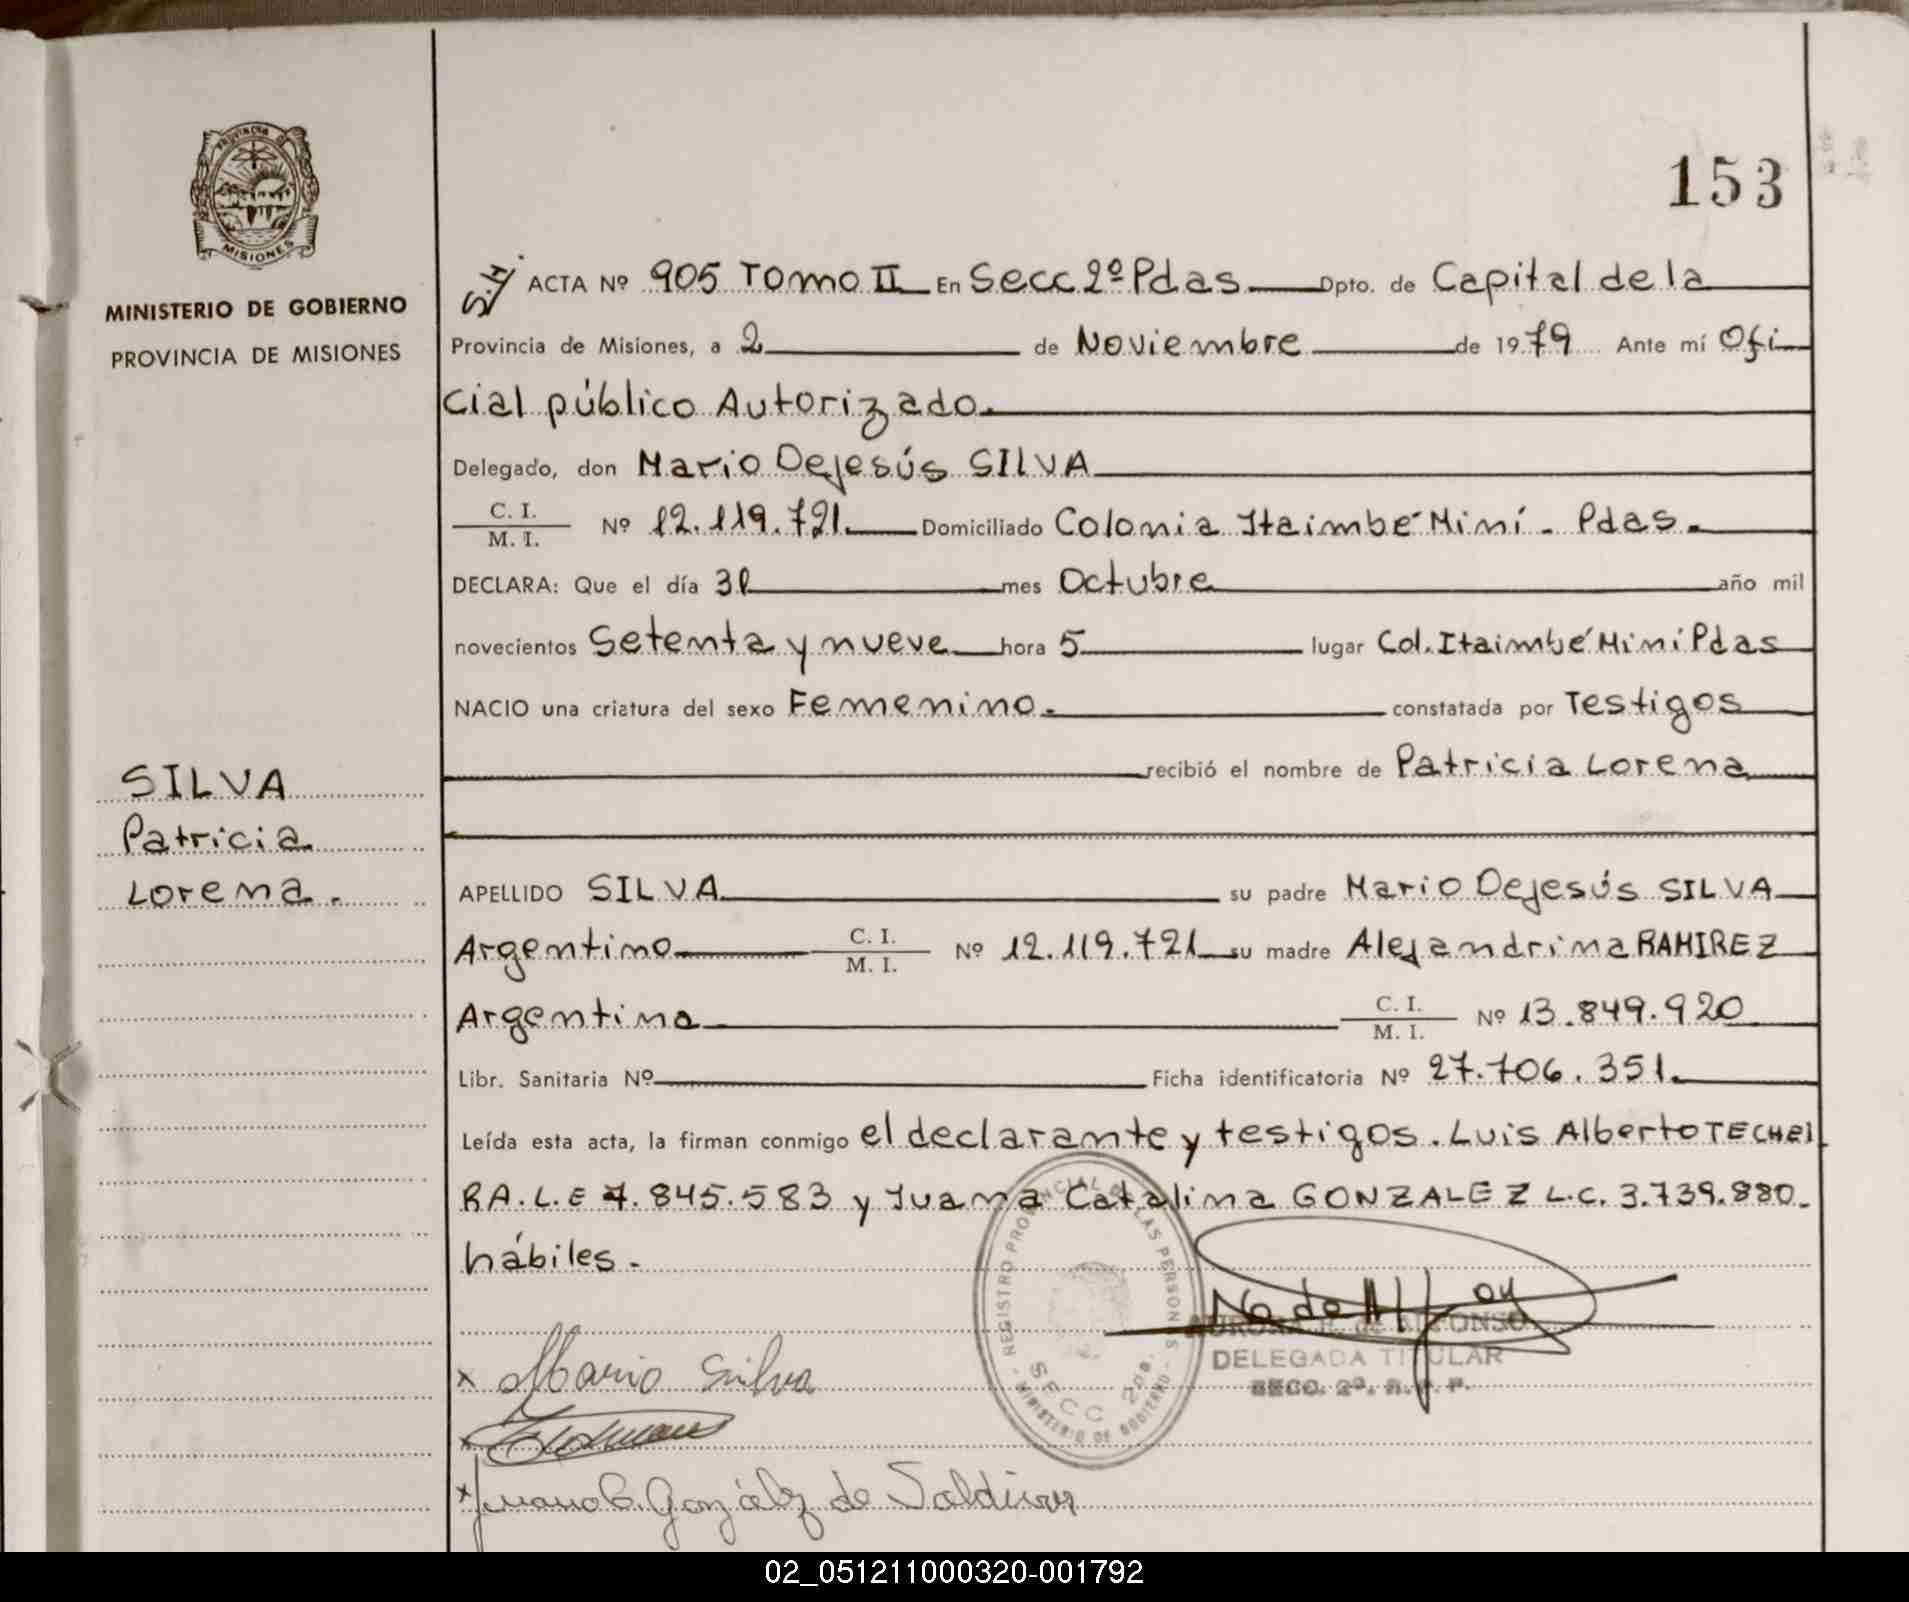 153
PROVINCIA DE
MISIONES
MINISTERIO DE GOBIERNO
PROVINCIA DE MISIONES
SILVA
Patricia
Lorena.
S/4 ACTA Nº 905 Tomo II En Secc 2º Pdas Dpto. de Capital de la
Provincia de Misiones, a 2 de Noviembre de 1979 Ante mí Ofi
cial público Autorizado.
Delegado, don Mario Dejesús SILVA
C. I.
M. I. Nº 12.119.721. Domiciliado Colonia Itaimbé Miní - Pdas.
DECLARA: Que el día 31 mes Octubre año mil
novecientos Setenta y nueve hora 5 lugar Col. Itaimbé Miní Pdas
NACIO una criatura del sexo Femenino. constatada por Testigos
recibió el nombre de Patricia Lorena
APELLIDO SILVA su padre Mario Dejesús SILVA
Argentino C. I.
M. I. Nº 12.119.721 su madre Alejandrina RAMIREZ
Argentina C. I.
M. I. Nº 13.849.920
Libr. Sanitaria Nº Ficha identificatoria Nº 27.706.351.
Leída esta acta, la firman conmigo el declarante y testigos. Luis Alberto TECHEI
RA. L.E 7.845.583 y Juana Catalina GONZALEZ L.C. 3.739.880.
hábiles.
REGISTRO PROVINCIAL DE LAS PERSONAS
SECC 2da.
MINISTERIO DE GOBIERNO
de ALFONSO
DELEGADA TITULAR
SECC. 2º. R. P. P.
x Mario Silva
x
x Juana C. González de Saldivar
02_051211000320-001792